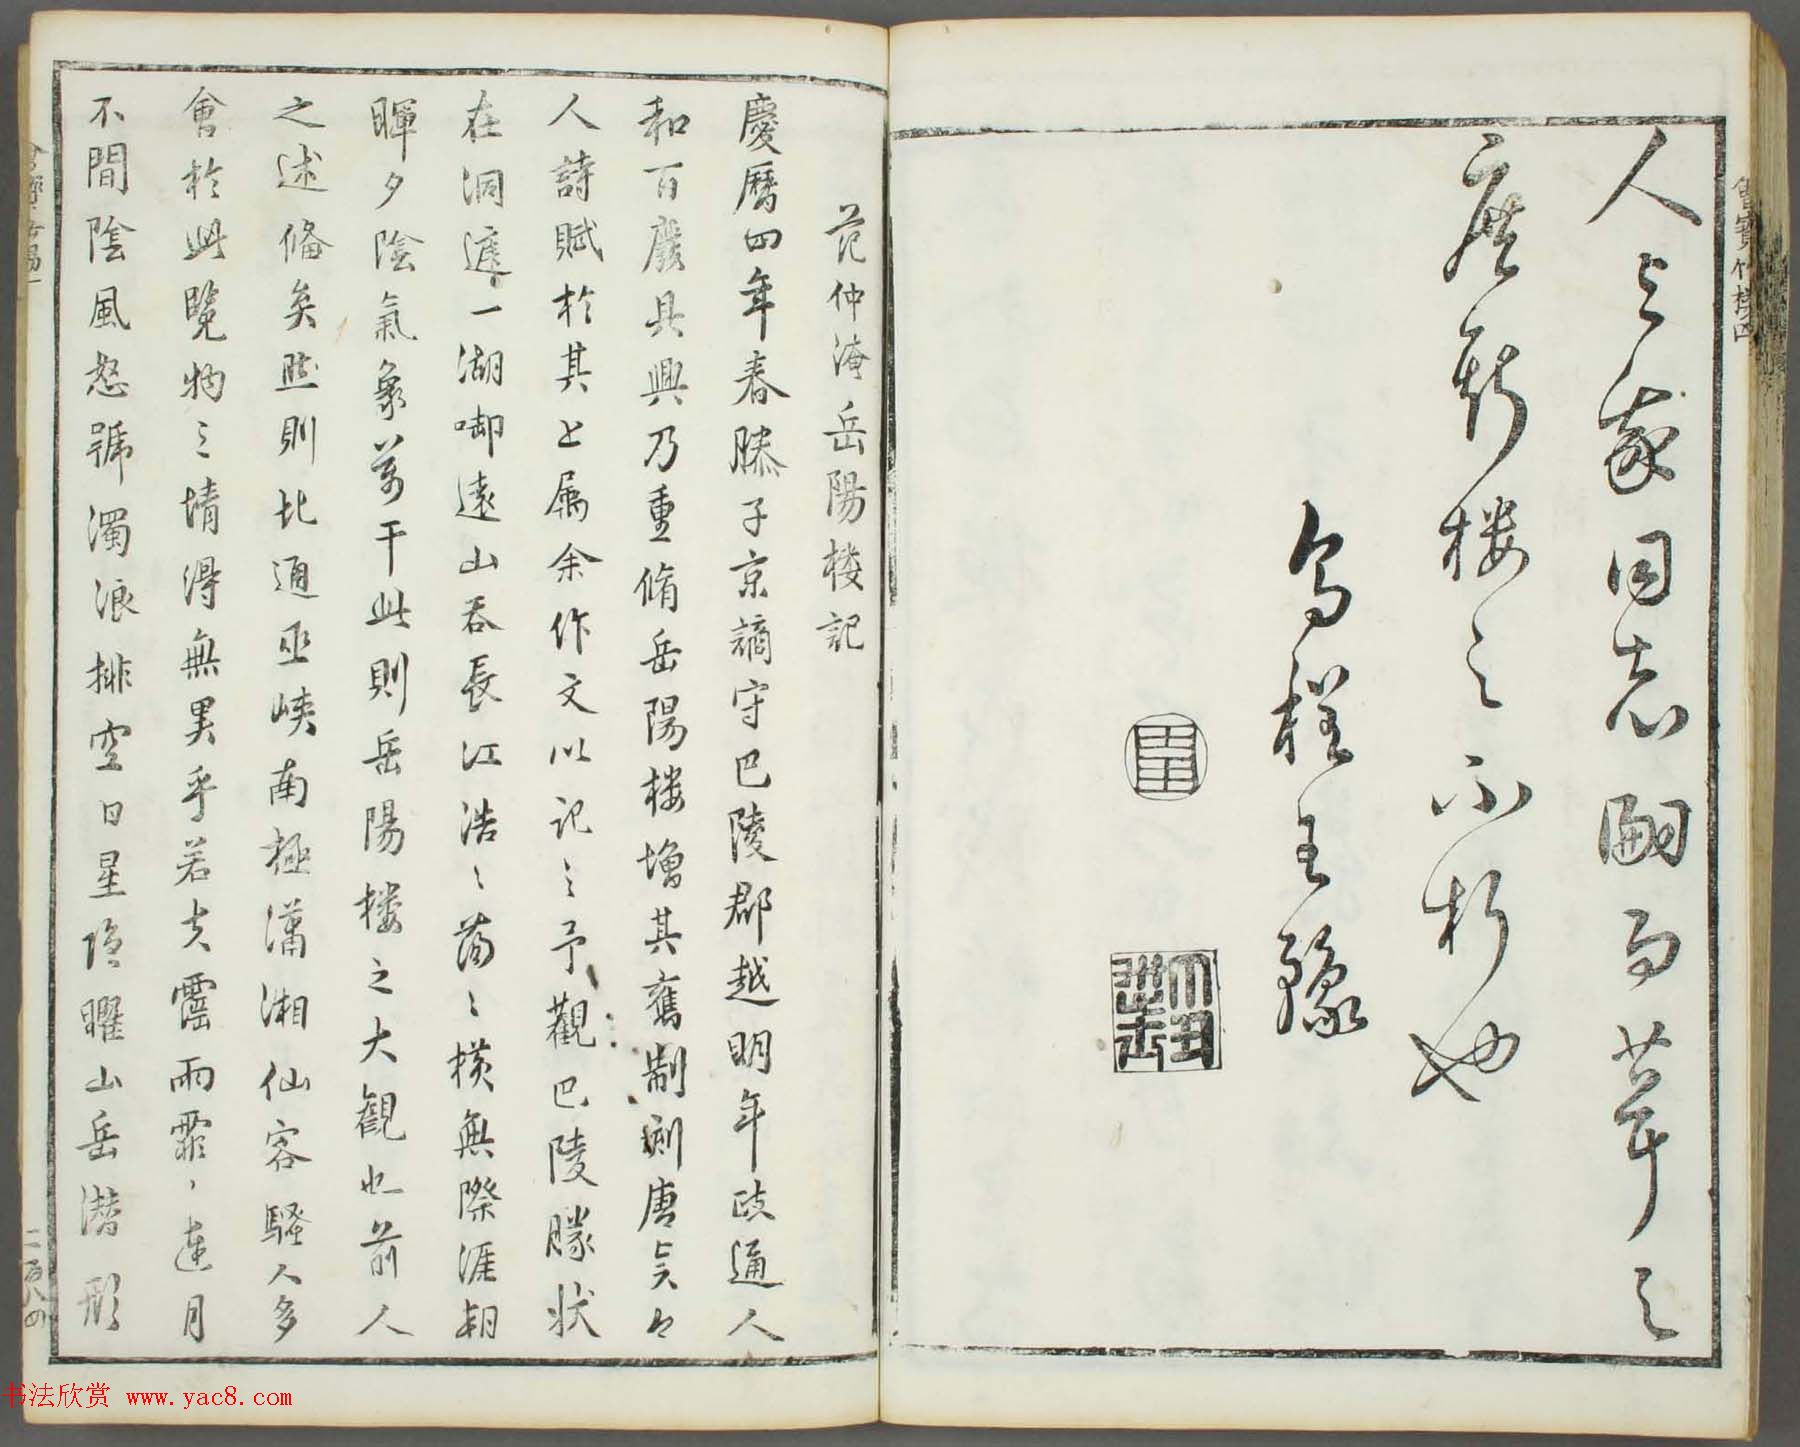 人与我同志嗣而葺之
庶斯楼之不朽也
烏程王豫
范仲淹岳陽楼記
慶曆四年春滕子京謫守巴陵郡越明年政通人
和百廢具興乃重脩岳陽楼增其舊制刻唐賢今
人詩賦於其上属余作文以記之予觀巴陵勝状
在洞庭一湖啣遠山吞長江浩〻蕩〻横無際涯朝
暉夕陰氣象萬千此則岳陽楼之大觀也前人
之述備矣然則北通巫峽南極瀟湘仙客騷人多
會於此覧物之情得無異乎若夫霪雨霏〻連月
不開陰風怒號濁浪排空日星隐曜山岳潜形
书法欣赏 www.yac8.com